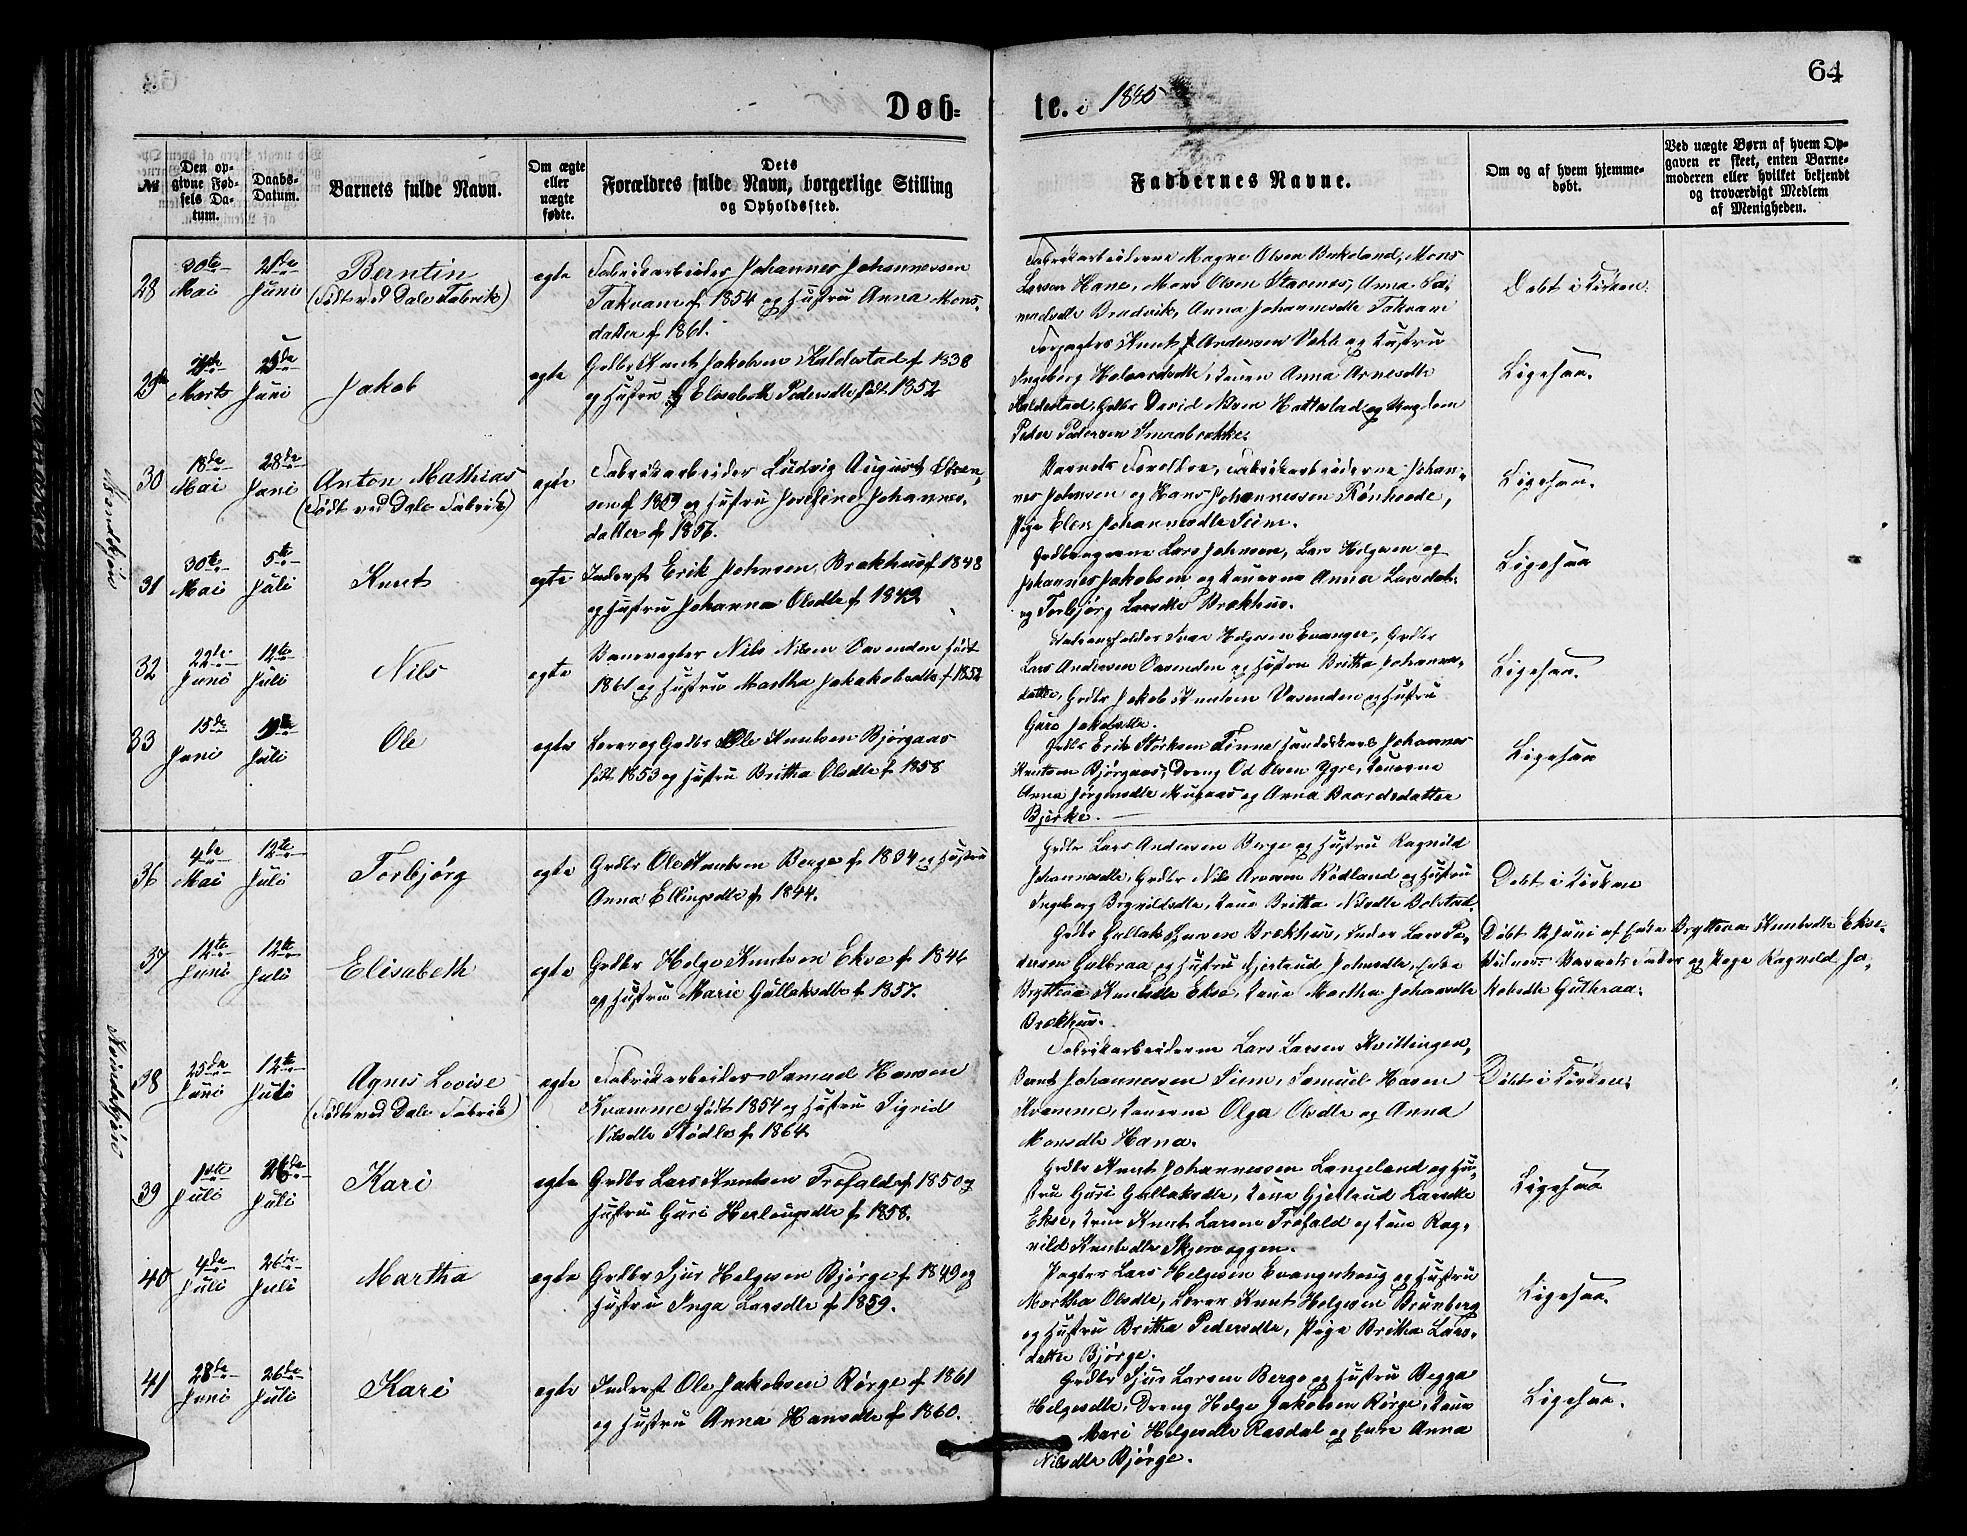 64
Døb-
te. i 1885
№
Den op-
givne Fød-
sels Da-
tum.
Daabs-
Datum.
Barnets fulde Navn.
Om ægte
eller
uægte
fødte.
Dets
Forældres fulde Navn, borgerlige Stilling
og Opholdssted.
Faddernes Navne.
Om og af hvem hjemme-
døbt.
Ved uægte Børn af hvem Op-
gaven er skeet, enten Barne-
moderen eller hvilket bekjendt
og troværdigt Medlem
af Menigheden.
Mandkjøn
28
30te Mai
21de Juni
Berntin
(Født ved Dale Fabrik)
egte
Fabrikarbeider Johannes Johannessen
Takvam f. 1854 og Hustru Anna Mons-
datter f 1861.
Fabrikarbeiderne Magne Olsen Birkeland, Mons
Larsen Hane, Mons Olsen Stavenes, Anna
Bradvik, Anna Johannesdtr Takvam
Døbt i Kirken.
29
Marts
Juni
Jakob
egte
Grdbr Knut Jakobsen Kaldestad f 1838
og Hustru Elisabeth Pedersdtr født 1852
Forpagter Knut Andersen og Hustru
Ingeborg, Konen Anna Arnesdtr
Kaldestad, Grdbr David Nilsen Hatlestad og Ungdom
Peder Pedersen Smaabrække.
Ligesaa.
30
18de Mai
28de Juni
Anton Mathias
(Født ved Dale Fabrik)
egte
Fabrikarbeider Ludvig August
sen f 1859 og Hustru Josefine Johannes-
datter f 1856.
Barnets Forældre, Fabrikarbeiderne Johan-
nes Johnsen og Hans Johannessen Rønhovde,
Pige Elen Johannesdtr Seim.
Ligesaa.
31
30te Mai
5te Juli
Knut
egte
Inderst Erik Johnsen Brækhus f 1848
og Hustru Johanna Olsdtr f 1842
Grdbrugerne Lars Johnsen, Lars Helgesen og
Johannes Jakobsen og Konerne Anna Larsdatr
og Torbjørg Larsdtr Brækhus.
Ligesaa
32
22de Juni
12te Juli
Nils
egte
Banevogter Nils Nilsen født
1861 og Hustru Martha Jakakobsdtr f 1852
Helgesen Evanger, Grdbr
Lars Andersen og Hustru Britha Johannes-
datter, Grdbr Jakob Knutsen og Hustru
Guro Jakobsdtr.
Ligesaa.
33
15de Juni
Juli
Ole
egte
Lærer og Grdbr Ole Knutsen Bjørgaas
født 1853 og Hustru Britha Olsdtr f 1858
Grdbr Erik Finne Johannes
Knutsen Bjørgaas, Dreng Od Olsen Ygre, Konerne
Anna Jørgensdtr og Anna Baardsdatter
Bjerke.
Ligesaa
Kvindekjøn
36
4de Mai
12te Juli
Torbjørg
egte
Grdbr Ole Knutsen Berge f 1834 og Hustru
Anna Ellingsdtr f 1844.
Grdbr Lars Andersen Berge og Hustru Ragnild
Johannesdtr, Grdbr Nils Rødland og Hustru
Ingeborg Brynildsdtr, Kone Britha Nilsdtr Bolstad.
Døbt i Kirken
37
Juni
12te Juli
Elisabeth
egte
Grdbr Helge Knutsen Ekse f 1846
og Hustru Marie Gullaksdtr f 1857.
Grdbr Gullak Brækhus, Lars Pe-
dersen Gulbraa og Hustru Gjertrud Johnsdtr, Enke
Brytteva Knutsdtr Ekse, Kone Martha Johansdtr
Brækhus.
Døbt 12 Juni af Enke Brytteva Knutsdtr Ekse.
Vidner: Barnets Fader og Pige Ragnild Ja-
kobsdtr Gulbraa.
38
25de Juni
12te Juli
Agnes Lovise
(Født ved Dale Fabrik)
egte
Fabrikarbeider Samuel Hansen
Kvamme født 1854 og Hustru Sigrid
Nilsdtr Stødle f 1864.
Fabrikarbeiderne Lars Larsen Kvittingen,
Bernt Johannessen Seim, Samuel Hansen
Kvamme, Konerne Olga Olsdtr og Anna
Monsdtr Hana.
Døbt i Kirken.
39
1ste Juli
26de Juli
Kari
egte
Grdbr Lars Knutsen Trefald f 1850 og
Hustru Guri Herlaugsdtr f 1858.
Grdbr Knut Johannessen Langeland og Hu-
stru Guri Gullaksdtr, Kone Gjertrud Larsdtr
Ekse, Knut Larsen Trefald og Kone Rag-
nild Knutsdtr
Ligesaa
40
4de Juli
26de Juli
Martha
egte
Grdbr Sjur Helgesen Bjørge f 1849 og
Hustru Inga Larsdtr f 1859.
Pagter Lars Helgesen Evangerhaug og Hustru
Martha Olsdtr, Lærer Knut Helgesen Brunberg
og Hustru Britha Pedersdtr, Pige Britha Lars-
datter Bjørge.
Ligesaa.
41
28de Juni
26de Juli
Kari
egte
Inderst Ole Jakobsen Rørge f 1861
og Hustru Anna Hansdtr f 1860.
Grdbr Sjur Larsen Berge og Hustru Begga
Helgesdtr, Dreng Helge Jakobsen Rørge, Kone
Mari Helgesdtr Rasdal og Enke Anna
Nilsdtr Bjørge.
Ligesaa.